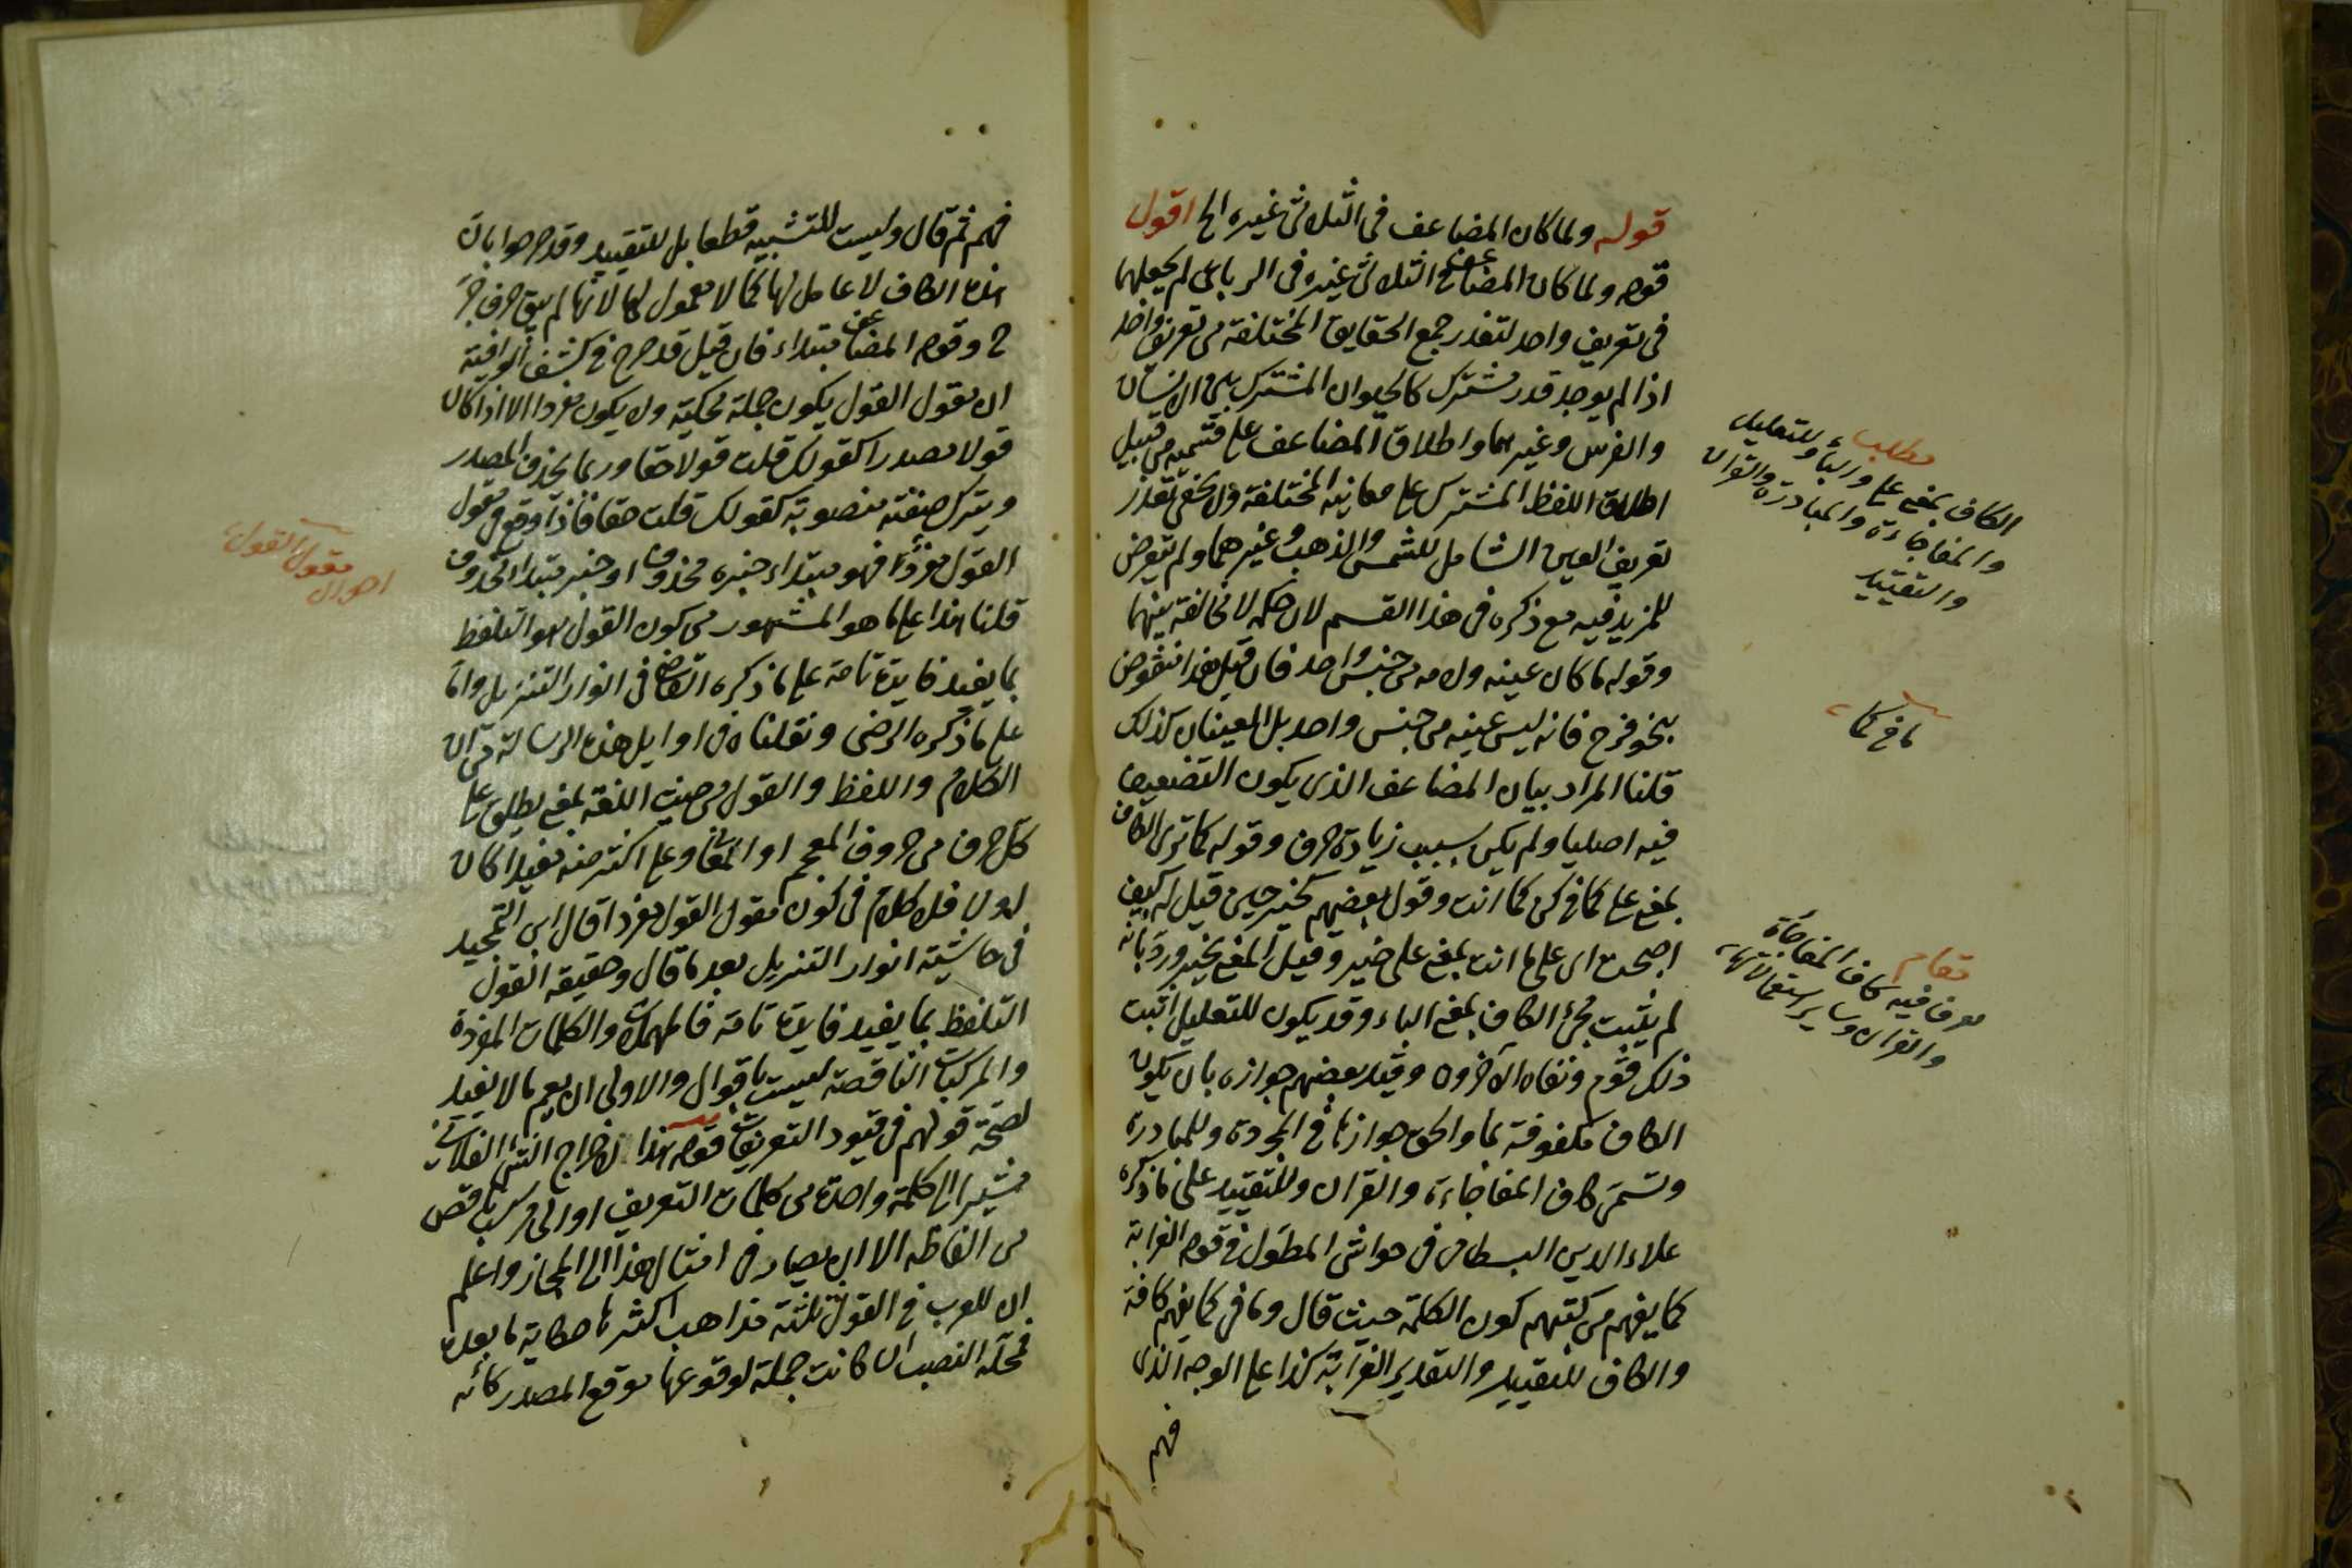 قوله ولما كان المضاعف فى الثلاثى غيره الخ اقول
قوله ولما كان المضاعف الثلاثى غيره فى الرباعى لم يجعلهما
فى تعريف واحد لتعذر جمع الحقايق المختلفة فى تعريف واحد
اذا لم يوجد قدر مشترك كالحيوان المشترك بين الانسان
والفرس وغيرهما واطلاق المضاعف على قسميه من قبيل
اطلاق اللفظ المشترك على معانيه المختلفة ولا يخفى تعذر
تعريف العين الشامل للشمس والذهب وغيرهما ولم يتعرض
للمزيد فيه مع ذكره فى هذا القسم لان حكمه لا مخالفة بينهما
وقوله ما كان عينه ولامه من جنس واحد فان قيل هذا منقوض
بنحو فرح فانه ليس عينه من جنس واحد بل العينان كذلك
قلنا المراد بيان المضاعف الذى يكون التضعيف
فيه اصليا ولم يكن بسبب زيادة حرف وقوله كما ترى الكاف
بمعنى على كما فى كن كما انت وقول بعضهم كخير حين قيل له كيف
اصبحت اى على ما انت بمعنى على خير وقيل المعنى بخير ورد بانه
لم يثبت مجئ الكاف بمعنى الباء وقد يكون للتعليل اثبت
ذلك قوم ونفاه الآخرون وقيد بعضهم جوازه بان يكون
الكاف مكفوفة بما والحق جوازها فى المجردة وللمبادرة
وتسمى كاف المفاجاءة والقران وللتقييد على ما ذكره
علاء الدين البسطامى فى حواشى المطول فى قوله الغرابة
كما يفهم من كتبهم كون الكلمة حيث قال وما فى كما يفهم كافة
والكاف للتقييد والتقدير الغرابة كذا على الوجه الذى
فهم
مطلب
الكاف بمعنى على والباء وللتعليل
والمفاجاءة والمبادرة والقران
والتقييد
ما فى كما
مقام
معرف فيه كاف المفاجاة
والقران وساير استعمالاتها
فهم ثم قال وليست للتشبيه قطعا بل للتقييد وقد صرحوا بان
هذه الكاف لا عامل لها كما لا معمول لها لانها لم يبق حرف جر
ح وقوله المضاعف مبتداء فان قيل قد صرح فى كشف الوافية
ان مقول القول يكون جملة محكية ولا يكون مفردا الا اذا كان
قولا مصدرا كقولك قلت قولا حقا وربما يحذف المصدر
ويترك صفته منصوبة كقولك قلت حقا فاذا وقع مقول
القول مفردا فهو مبتداء خبره محذوف او خبر مبتدا محذوف
قلنا هذا على ما هو المشهور من كون القول هو التلفظ
بما يفيد فايدة تامة على ما ذكره القاضى فى انوار التنزيل واما
على ما ذكره الرضى ونقلناه فى اوايل هذه الرسالة من ان
الكلام واللفظ والقول من حيث اللغة بمعنى يطلق على
كل حرف من حروف المعجم او المعانى وعلى اكثر منه مفيدا كان
او لا فلا كلام فى كون مقول القول مفردا قال ابن التمجيد
فى حاشية انوار التنزيل بعد ما قال وحقيقة القول
التلفظ بما يفيد فايدة تامة فالمهملات والكلمات المفردة
والمركبات الناقصة ليست باقوال والاولى ان يعم ما لا يفيد
لصحة قولهم فى قيود التعريفات قوله هذا لاخراج الشئ الفلانى
مشيرا الى كلمة واحدة من كلمات التعريف او الى مركب ناقص
من الفاظه الا ان يصار فى امثال هذا الى المجاز واعلم
ان للعرب فى القول ثلثة مذاهب اكثرها حكاية ما بعده
فمحله النصب ان كانت جملة لوقوعها موقع المصدر كانه
احوال
مقول القول